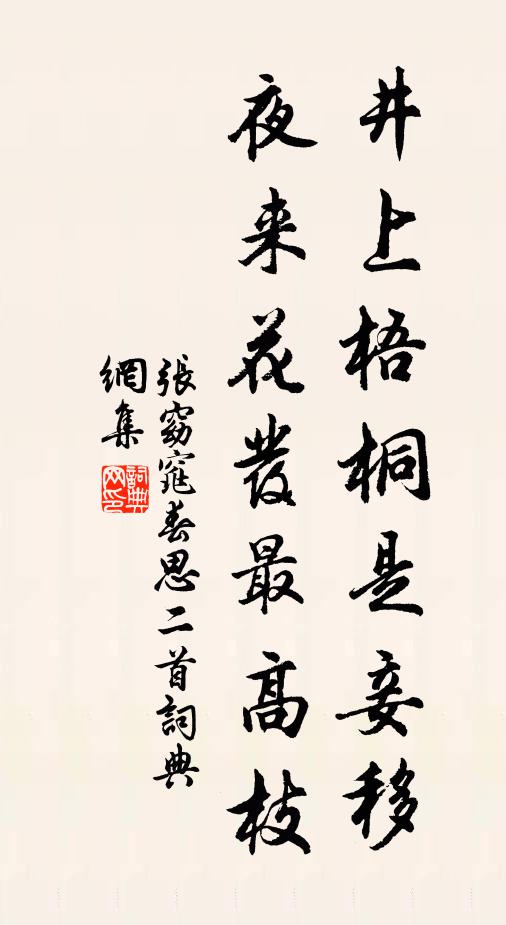 井上梧桐是妾移
夜来花發最高枝
張窈窕春思二首詞典
網集
詞典
网印